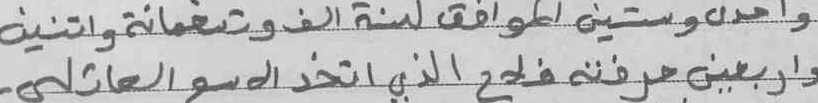 واحدى وستين الموافق لسنة الف وتسعمائة واثنين
واربعين حرفته فلاح الذي اتخذ الاسم العائلي